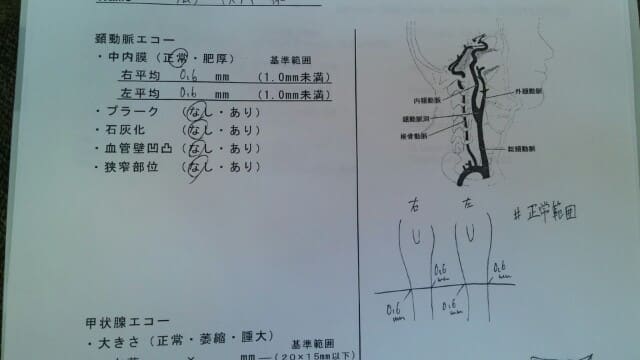 頚動脈エコー
・中内膜 (正常・肥厚) 基準範囲
右平均 0.6 mm (1.0mm未満)
左平均 0.6 mm (1.0mm未満)
・プラーク (なし・あり)
・石灰化 (なし・あり)
・血管壁凹凸 (なし・あり)
・狭窄部位 (なし・あり)
内頚動脈
外頚動脈
頚動脈洞
椎骨動脈
総頚動脈
右 左
# 正常範囲
0.6 mm 0.6 mm
0.6 mm 0.6 mm
甲状腺エコー
・大きさ (正常・萎縮・腫大) 基準範囲
mm (20×15mm以下)